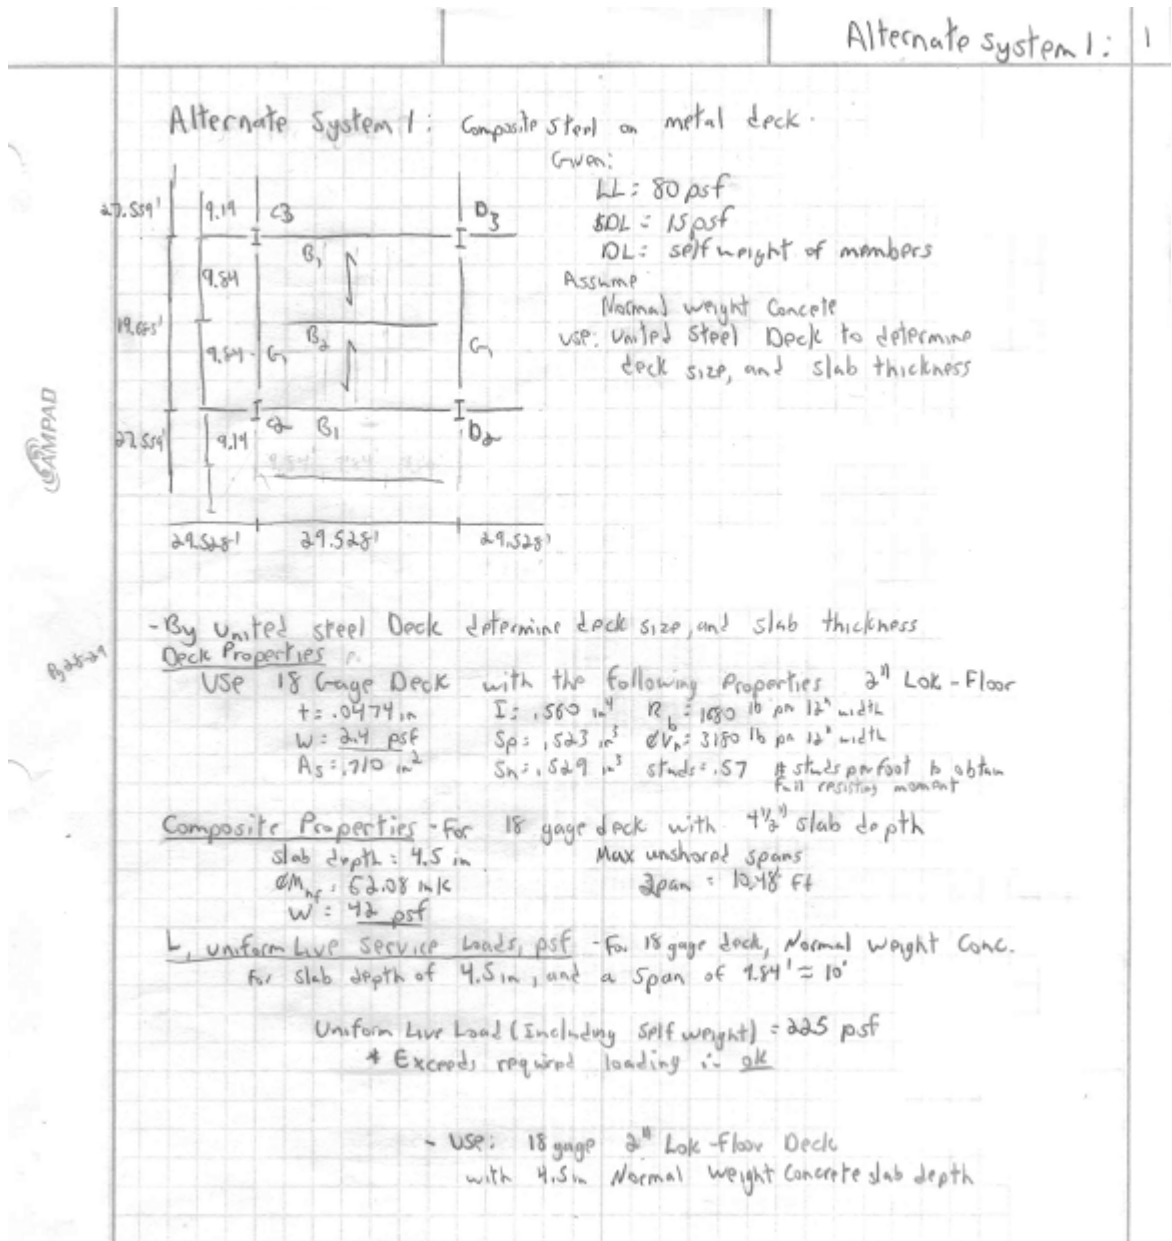 Alternate system 1: 1
Alternate System 1: Composite Steel on metal deck.
Given:
LL = 80 psf
SDL = 15 psf
DL = self weight of members
Assume
Normal weight Concete
use: United Steel Deck to determine
deck size, and slab thickness
27.559' 9.19 C3 D3
B1
9.84
19.685'
B2
9.84 G1 G1
C2 B1 D2
27.559' 9.19
29.528' 29.528' 29.528'
CAMPAD
- By United steel Deck determine deck size, and slab thickness
Pg 28-29
Deck Properties
Use 18 Gage Deck with the following Properties 2" Lok-Floor
t = .0474 in I = .560 in⁴ Rb = 1680 lb per 12" width
w = 2.4 psf Sp = .523 in³ ϕVn = 3180 lb per 12" width
As = .710 in² Sn = .529 in³ studs = .57 # studs per foot to obtain
full resisting moment
Composite Properties - For 18 gage deck with 4½" slab depth
slab depth = 4.5 in Max unshored spans
ϕMnf = 62.08 in k 2pan = 10.48 ft
W = 42 psf
L, uniform Live Service Loads, psf - For 18 gage deck, Normal weight Conc.
For slab depth of 4.5 in, and a span of 9.84' ≈ 10'
Uniform Live Load (Including self weight) = 225 psf
* Exceeds required loading ∴ ok
- Use: 18 gage 2" Lok-Floor Deck
with 4.5in Normal Weight Concrete slab depth